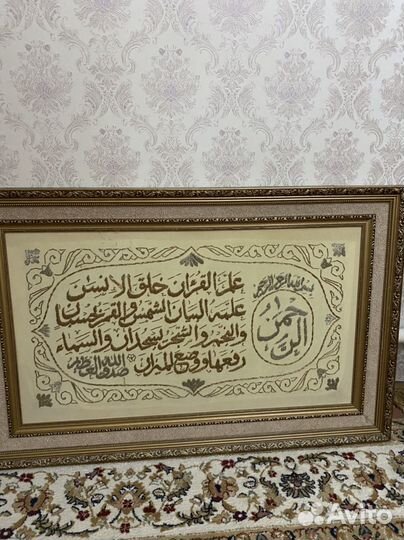 بسم الله الرحمن الرحيم
الرحمن
علم القرآن خلق الإنسن
علمه البيان الشمس والقمر بحسبان
والنجم والشجر يسجدان والسماء
رفعها ووضع الميزان
صدق الله العظيم
Avito